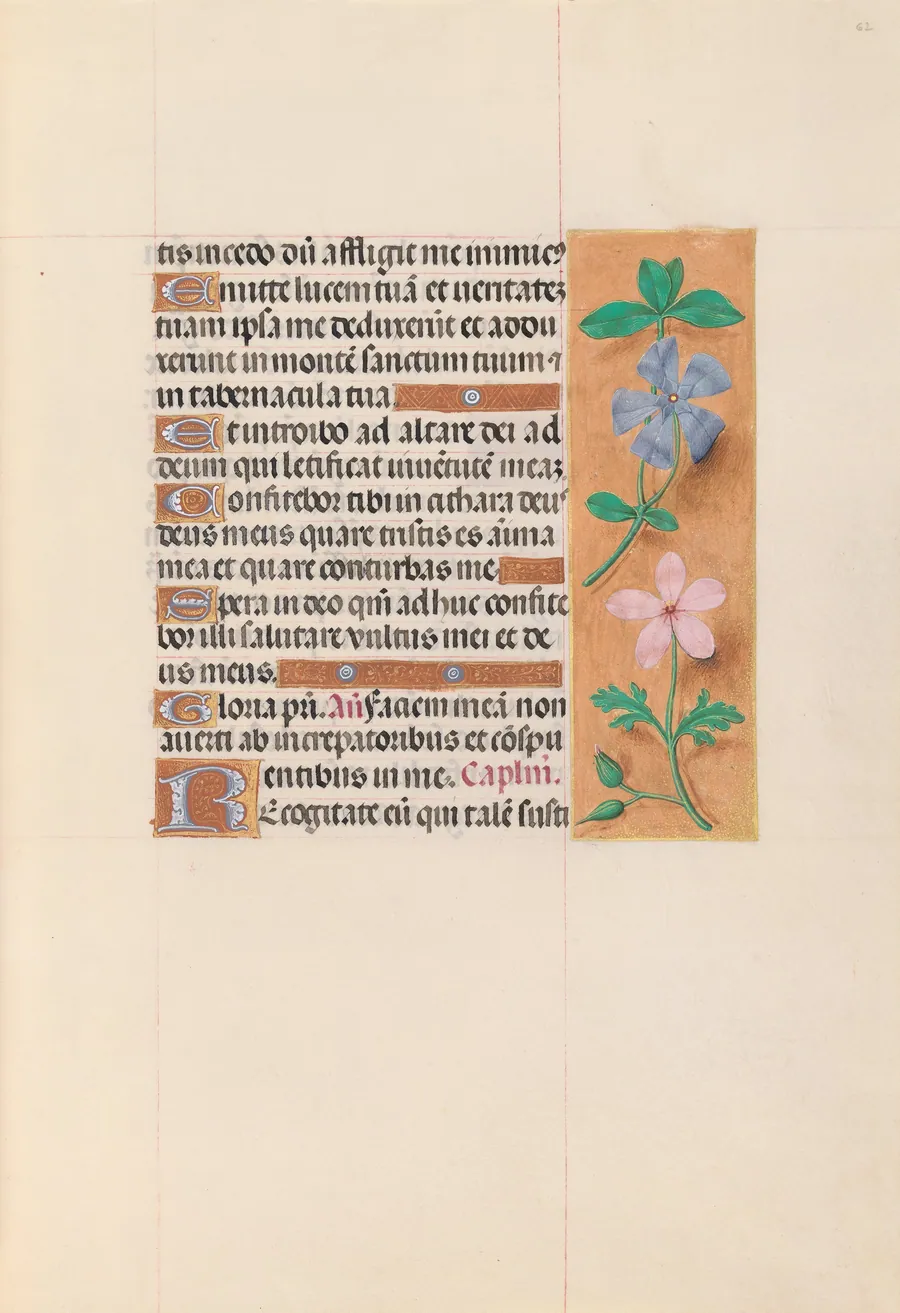 62
tis incedo dū affligit me inimicꝰ
Emitte lucem tuā et ueritatēʒ
tuam ipsa me deduxerūt et addu
xerunt in montē sanctum tuum ⁊
in tabernacula tua.
Et introibo ad altare dei ad
deum qui letificat iuuētutē meaʒ
Confitebor tibi in cithara deus
deus meus quare tristis es aīma
mea et quare conturbas me
Spera in deo qm̄ adhuc confite
bor illi salutare vultus mei et de
us meus.
Gloria pr̄i. Añ faciem meā non
auerti ab increpatoribus et cōspu
entibus in me. Caplm̄.
REcogitate eū qui talē susti